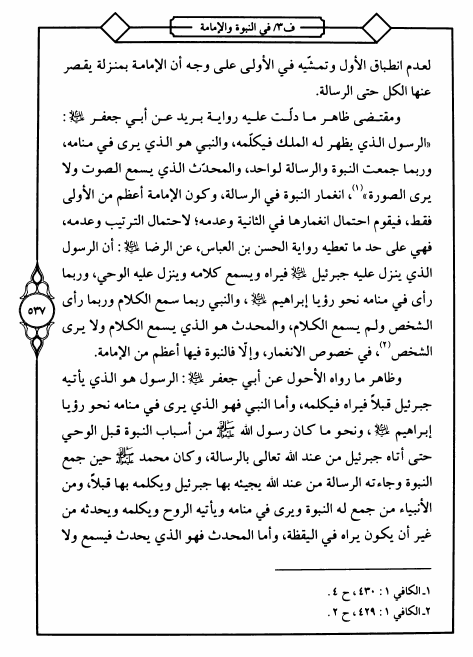 ف٣/ في النبوة والإمامة
لعدم انطباق الأول وتمشّيه في الأولى على وجه أن الإمامة بمنزلة يقصر
عنها الكل حتى الرسالة.
ومقتضى ظاهر ما دلّت عليه رواية بريد عن أبي جعفر ﵇:
«الرسول الذي يظهر له الملك فيكلّمه، والنبي هو الذي يرى في منامه،
وربما جمعت النبوة والرسالة لواحد، والمحدّث الذي يسمع الصوت ولا
يرى الصورة»(١)، انغمار النبوة في الرسالة، وكون الإمامة أعظم من الأولى
فقط، فيقوم احتمال انغمارها في الثانية وعدمه؛ لاحتمال الترتيب وعدمه،
فهي على حد ما تعطيه رواية الحسن بن العباس، عن الرضا ﵇: أن الرسول
الذي ينزل عليه جبرئيل ﵇ فيراه ويسمع كلامه وينزل عليه الوحي، وربما
رأى في منامه نحو رؤيا إبراهيم ﵇، والنبي ربما سمع الكلام وربما رأى
الشخص ولم يسمع الكلام، والمحدث هو الذي يسمع الكلام ولا يرى
الشخص(٢)، في خصوص الانغمار، وإلّا فالنبوة فيها أعظم من الإمامة.
وظاهر ما رواه الأحول عن أبي جعفر ﵇: الرسول هو الذي يأتيه
جبرئيل قبلاً فيراه فيكلمه، وأما النبي فهو الذي يرى في منامه نحو رؤيا
إبراهيم ﵇، ونحو ما كان رسول الله ﷺ من أسباب النبوة قبل الوحي
حتى أتاه جبرئيل من عند الله تعالى بالرسالة، وكان محمد ﷺ حين جمع
النبوة وجاءته الرسالة من عند الله يجيئه بها جبرئيل ويكلمه بها قبلاً، ومن
الأنبياء من جمع له النبوة ويرى في منامه ويأتيه الروح ويكلمه ويحدثه من
غير أن يكون يراه في اليقظة، وأما المحدث فهو الذي يحدث فيسمع ولا
١ـ الكافي ١: ٤٣٠، ح ٤.
٢ـ الكافي ١: ٤٢٩، ح ٢.
٥٣٧